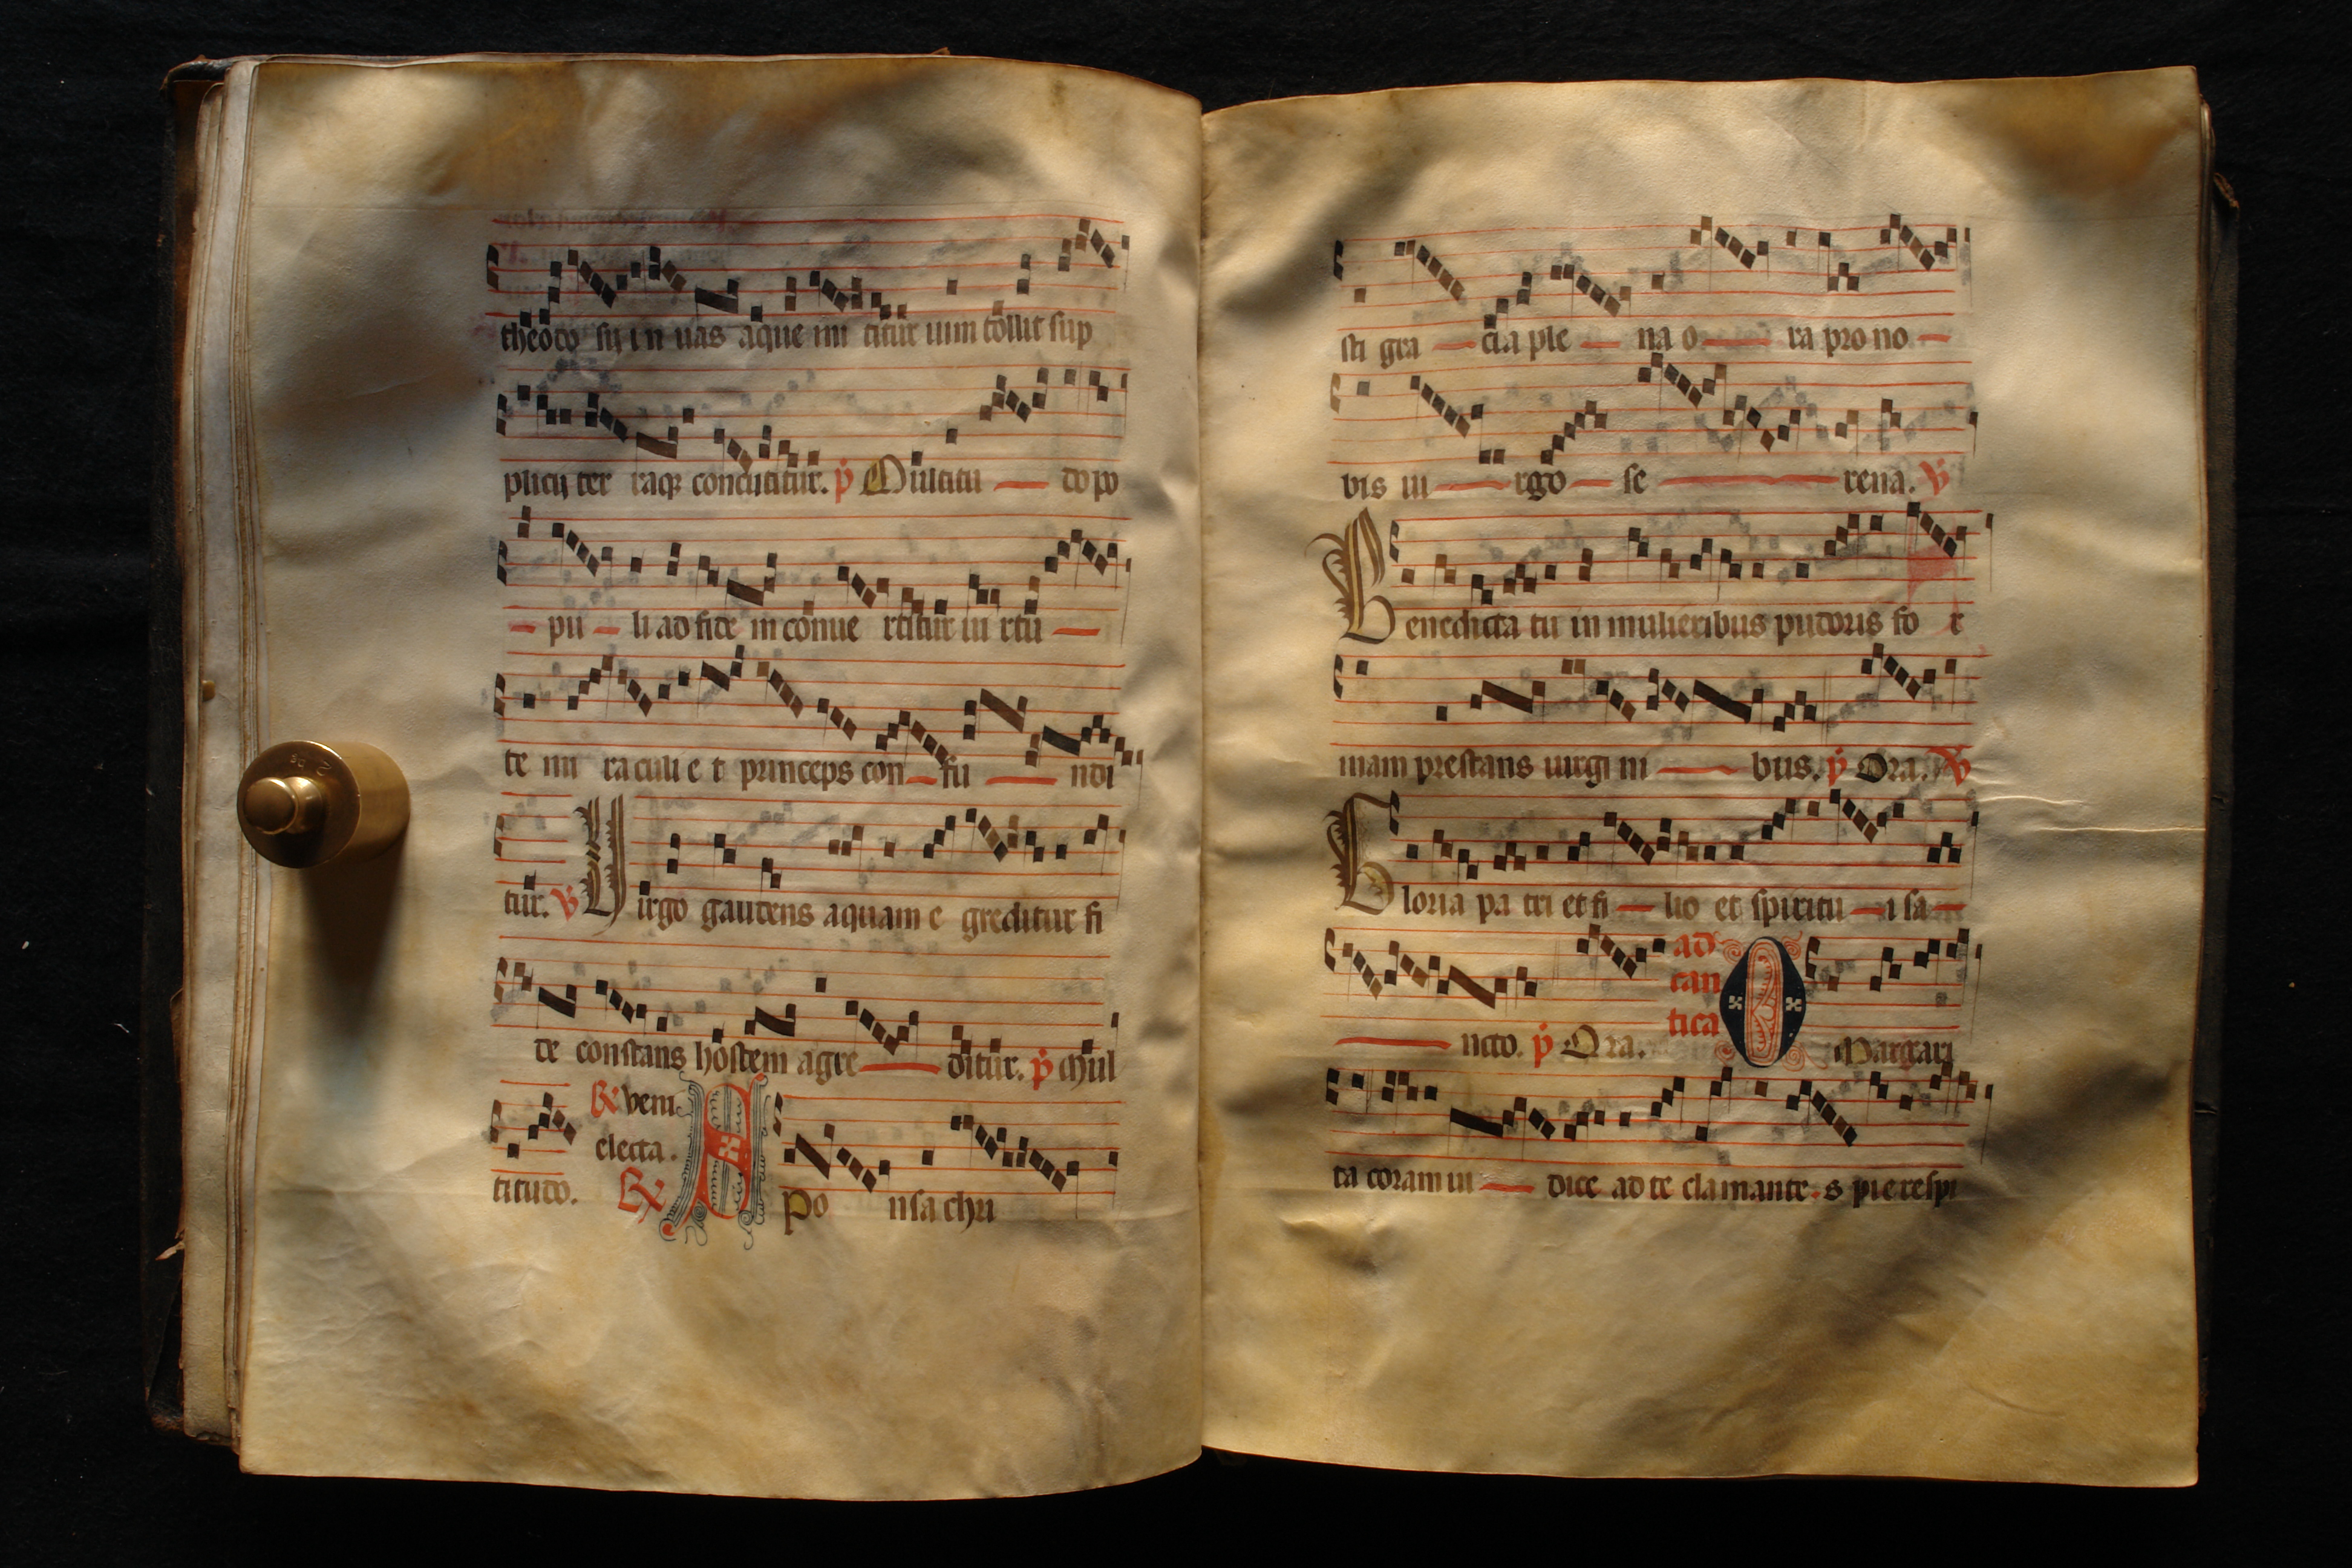 theodo sij in uas aque mi titur uim tollit sup
plicij ter raq concutitur. p Multitu do po
pu li ad fide m conue rtitur ui rtu
te mi raculi e t princeps con fu ndi
tur. V Uirgo gaudens aquam e greditur fi
de constans hostem agre ditur. p Mul
titudo. R veni electa. R A Spo nsa chri
sti gra cia ple na o ra pro no
bis ui rgo se rena. V
Benedicta tu in mulieribus pudoris fo r
mam prestans uirgi ni bus. p Ora. V
Gloria pa tri et fi lio et spiritu i sa
ncto. p Ora. ad cantica O Margari
ta coram iu dice ad te clamante s pie respi